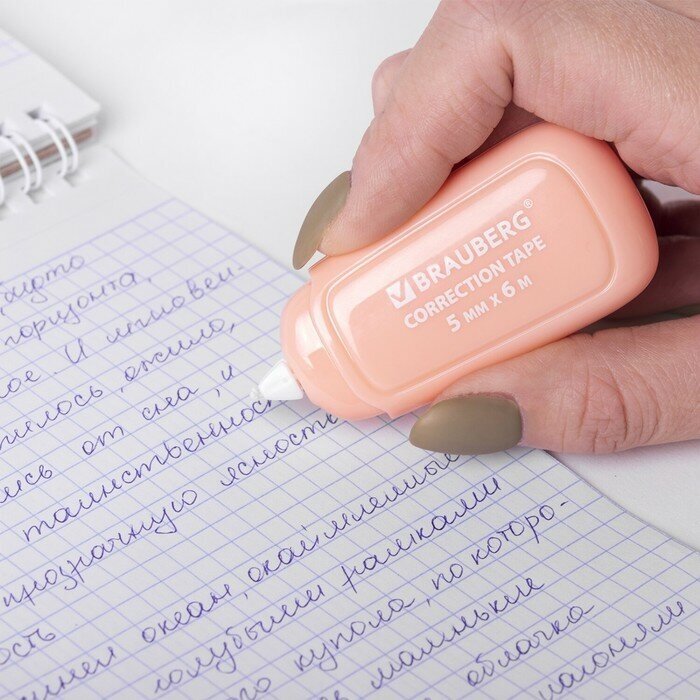 BRAUBERG®
CORRECTION TAPE
5 ММ X 6 М
горизонта,
ое. И мгновен-
илось, ожило,
ись от сна, и
таинственнос
прозрачную ясность
ость
океан, окаймленный
голубыми рамками
го купола, по которо-
маленькие
облачка